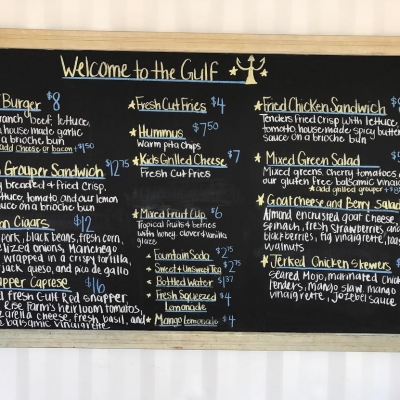 Welcome to the Gulf
Burger $8
ranch beef, lettuce,
house made garlic
on a brioche bun
add cheese or bacon +$1.50
Grouper Sandwich $12.75
breaded & fried crisp.
tomato, and our lemon
on a brioche bun
Cigars $12
pork, black beans, fresh corn,
onions, Manchego
wrapped in a crispy tortilla,
jack queso, and pico de gallo
Snapper Caprese $16
fresh Gulf Red snapper,
Rose Farm's heirloom tomatoes,
mozzarella cheese, fresh basil, and
balsamic vinaigrette
Fresh Cut Fries $4
Hummus $7.50
Warm Pita Chips
Kids Grilled Cheese $7
Fresh Cut Fries
Mixed Fruit Cup $6
Tropical fruits & berries
with honey, clover & vanilla
glaze
Fountain Soda $2.75
Sweet & Unsweet Tea $2.75
Bottled Water $1.37
Fresh Squeezed $4
Lemonade
Mango Lemonade $4
Fried Chicken Sandwich
Tenders Fried Crisp with lettuce,
tomato, house made spicy butter
sauce on a brioche bun
Mixed Green Salad
Mixed greens, cherry tomatoes,
our gluten free balsamic
add grilled grouper
Goat Cheese and Berry Salad
Almond encrusted goat cheese,
spinach, fresh strawberries and
blackberries, fig vinaigrette, toasted
walnuts
Jerked Chicken Skewers
Seared Mojo, marinated chicken
tenders, mango slaw, mango
vinaigrette, Jozebel sauce